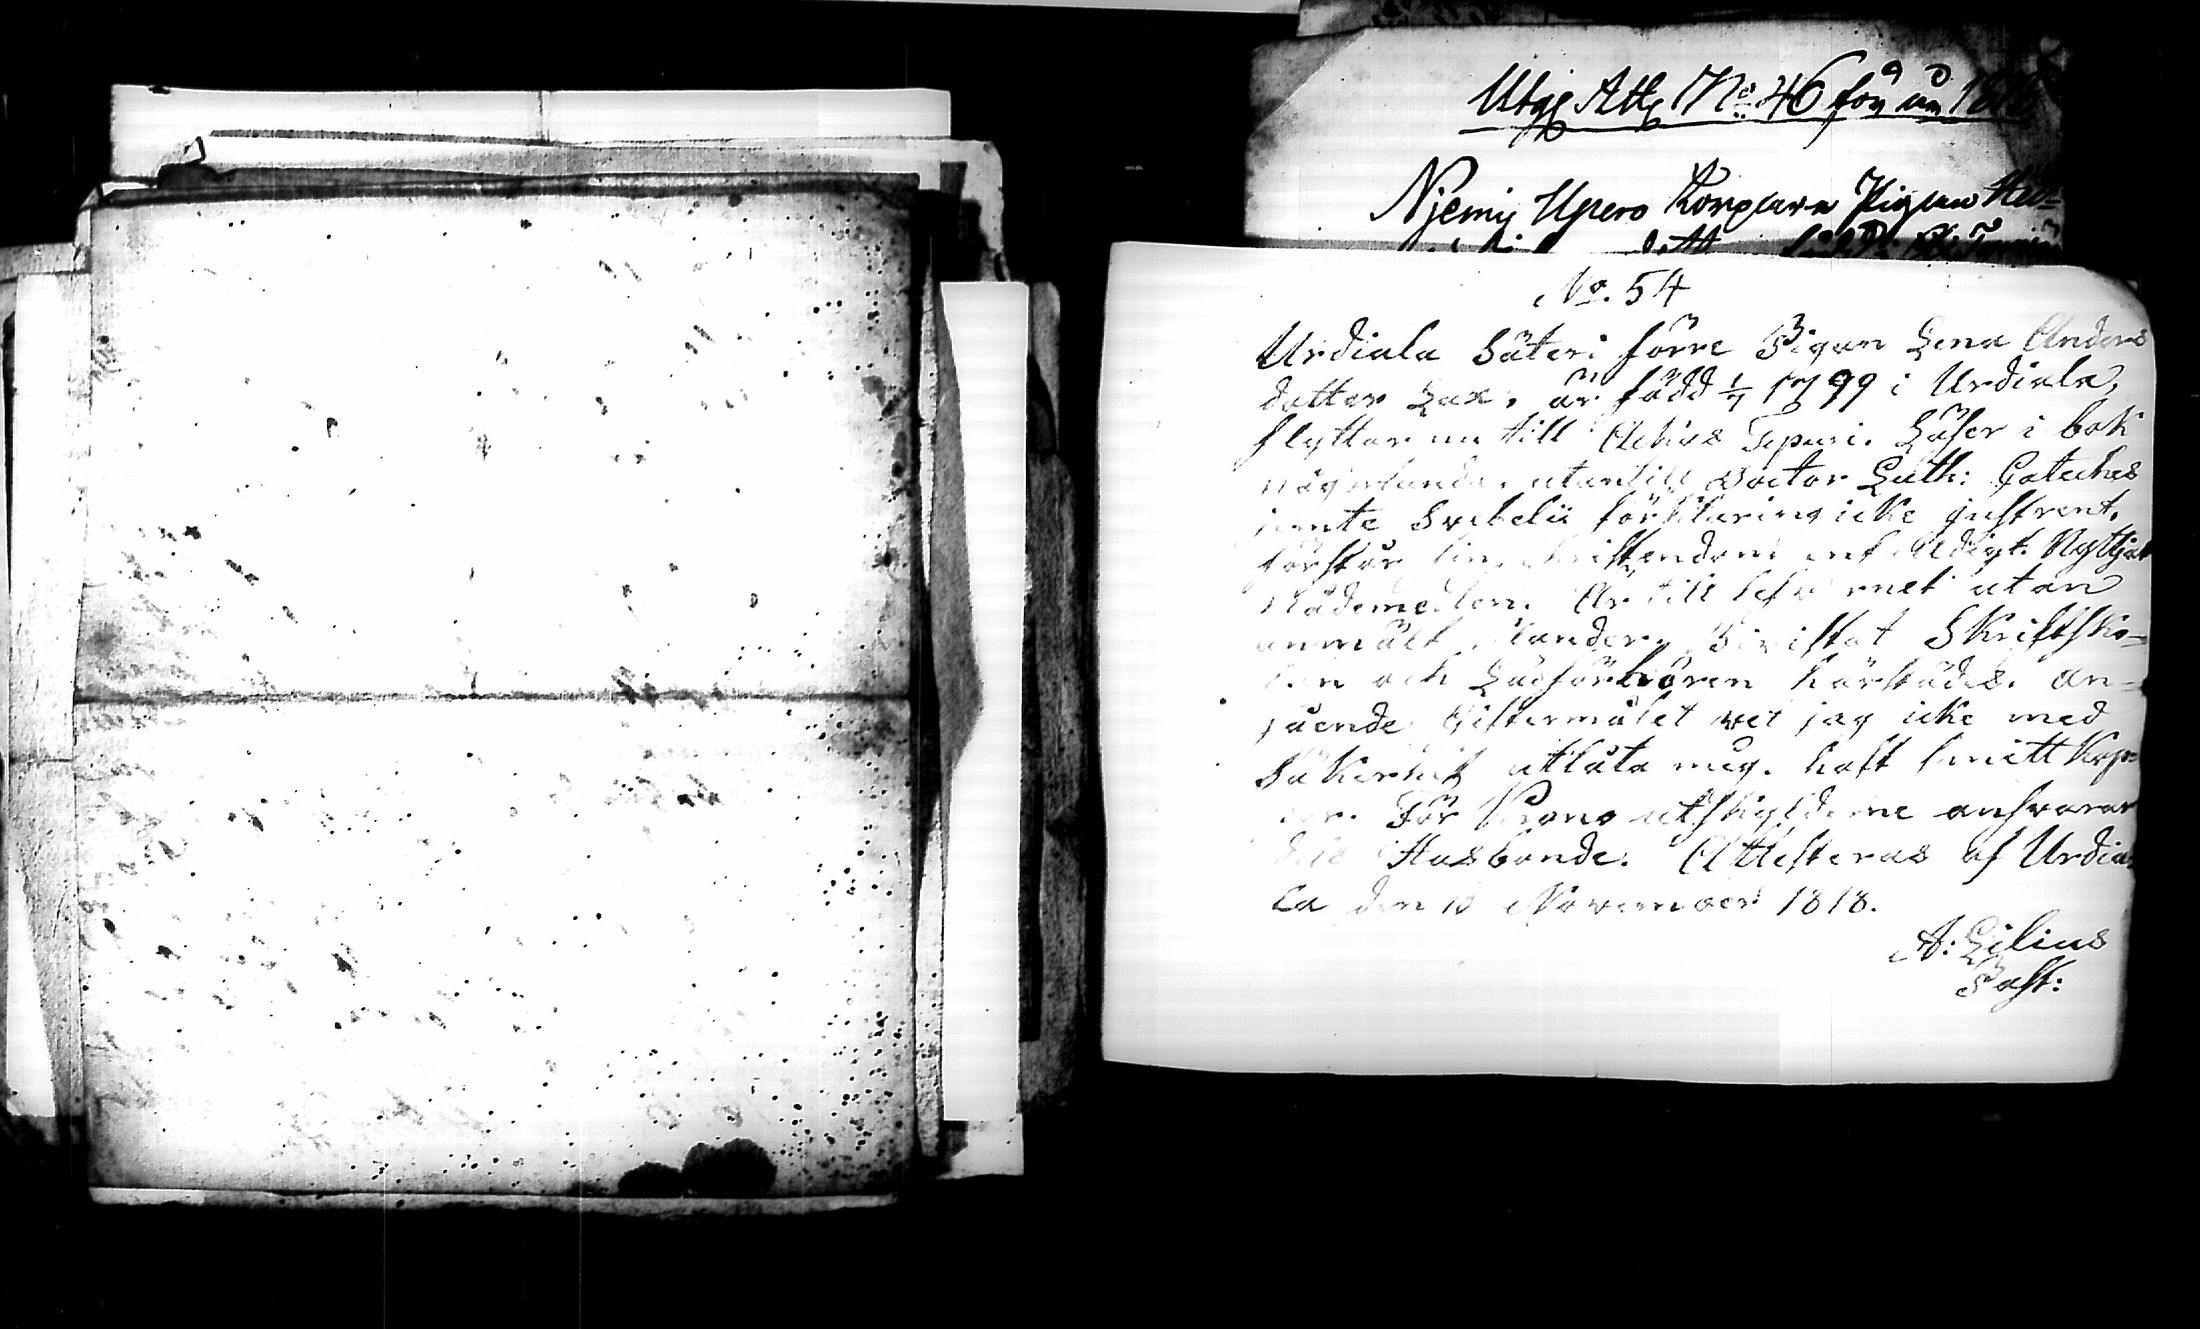 Utgf Att. No. 46 för år 18
Njemis Upero Torpare Pigan Hed=
No. 54
Urdiala Säteri förre Pigan Lena Anders
dotter Lax. är född 1/7 1799 i Urdiala,
flyttar nu till Achas Tepuri. Läser i bok
utantill Doctor Luth: Cateches
jemte Svebelii förklaring icke just rent.
förstår sin Christendom enfaldigt. Nyttjat
Nådemedlen. Är till lefvernet utan
anmält klander. Bevistat Skriftsko=
len och Läsförhören härstädes. An=
gående Giftermålet vet jag icke med
säkerhet utlåta mig. haft smitt Kop=
por. För Krono utskylderne ansvarar
dess Husbonde. Attesteras af Urdia=
la den 10 November 1818.
A: Lilius
Past: